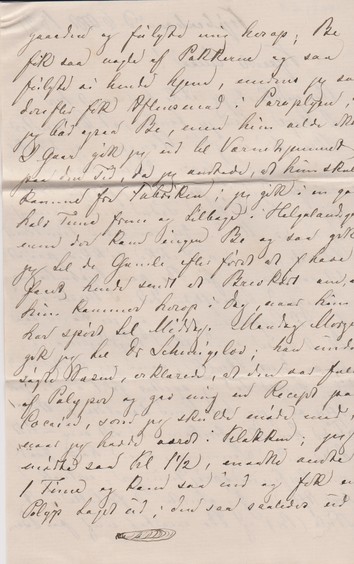 gaarden og fulgte mig herop; Be
fik saa nogle af Pakkerne og saa
fulgte vi hende hjem, medens jeg saa
derefter fik Aftensmad i Paraplyen,
jeg bad ogsaa Be, men hun vilde ikke
I Gaar gik jeg ud til Varmehjemmet
paa den Tid, da jeg ventede, at hun skul
komme fra Fabrikken; jeg gik i en go
hel Time frem og tilbage i Helgolandsga
men der kom ingen Be og saa gik
jeg til de Gamle efter først at have
sendt hende et Brevkort om, at
hun kommer herop i Dag, naar hun
har spist til Middag. Mandag Morge
gik jeg til Dr Schmigelow; han unde
søgte Næsen, erklærede, at den var fuld
af Polypper og gav mig en Recept paa
Cocain, som jeg skulde møde med,
naar jeg havde været i Klokken; jeg
mødte saa Kl 1½, maatte vente
1 Time og kom saa ind og fik en
Polyp taget ud; den saa saaledes ud